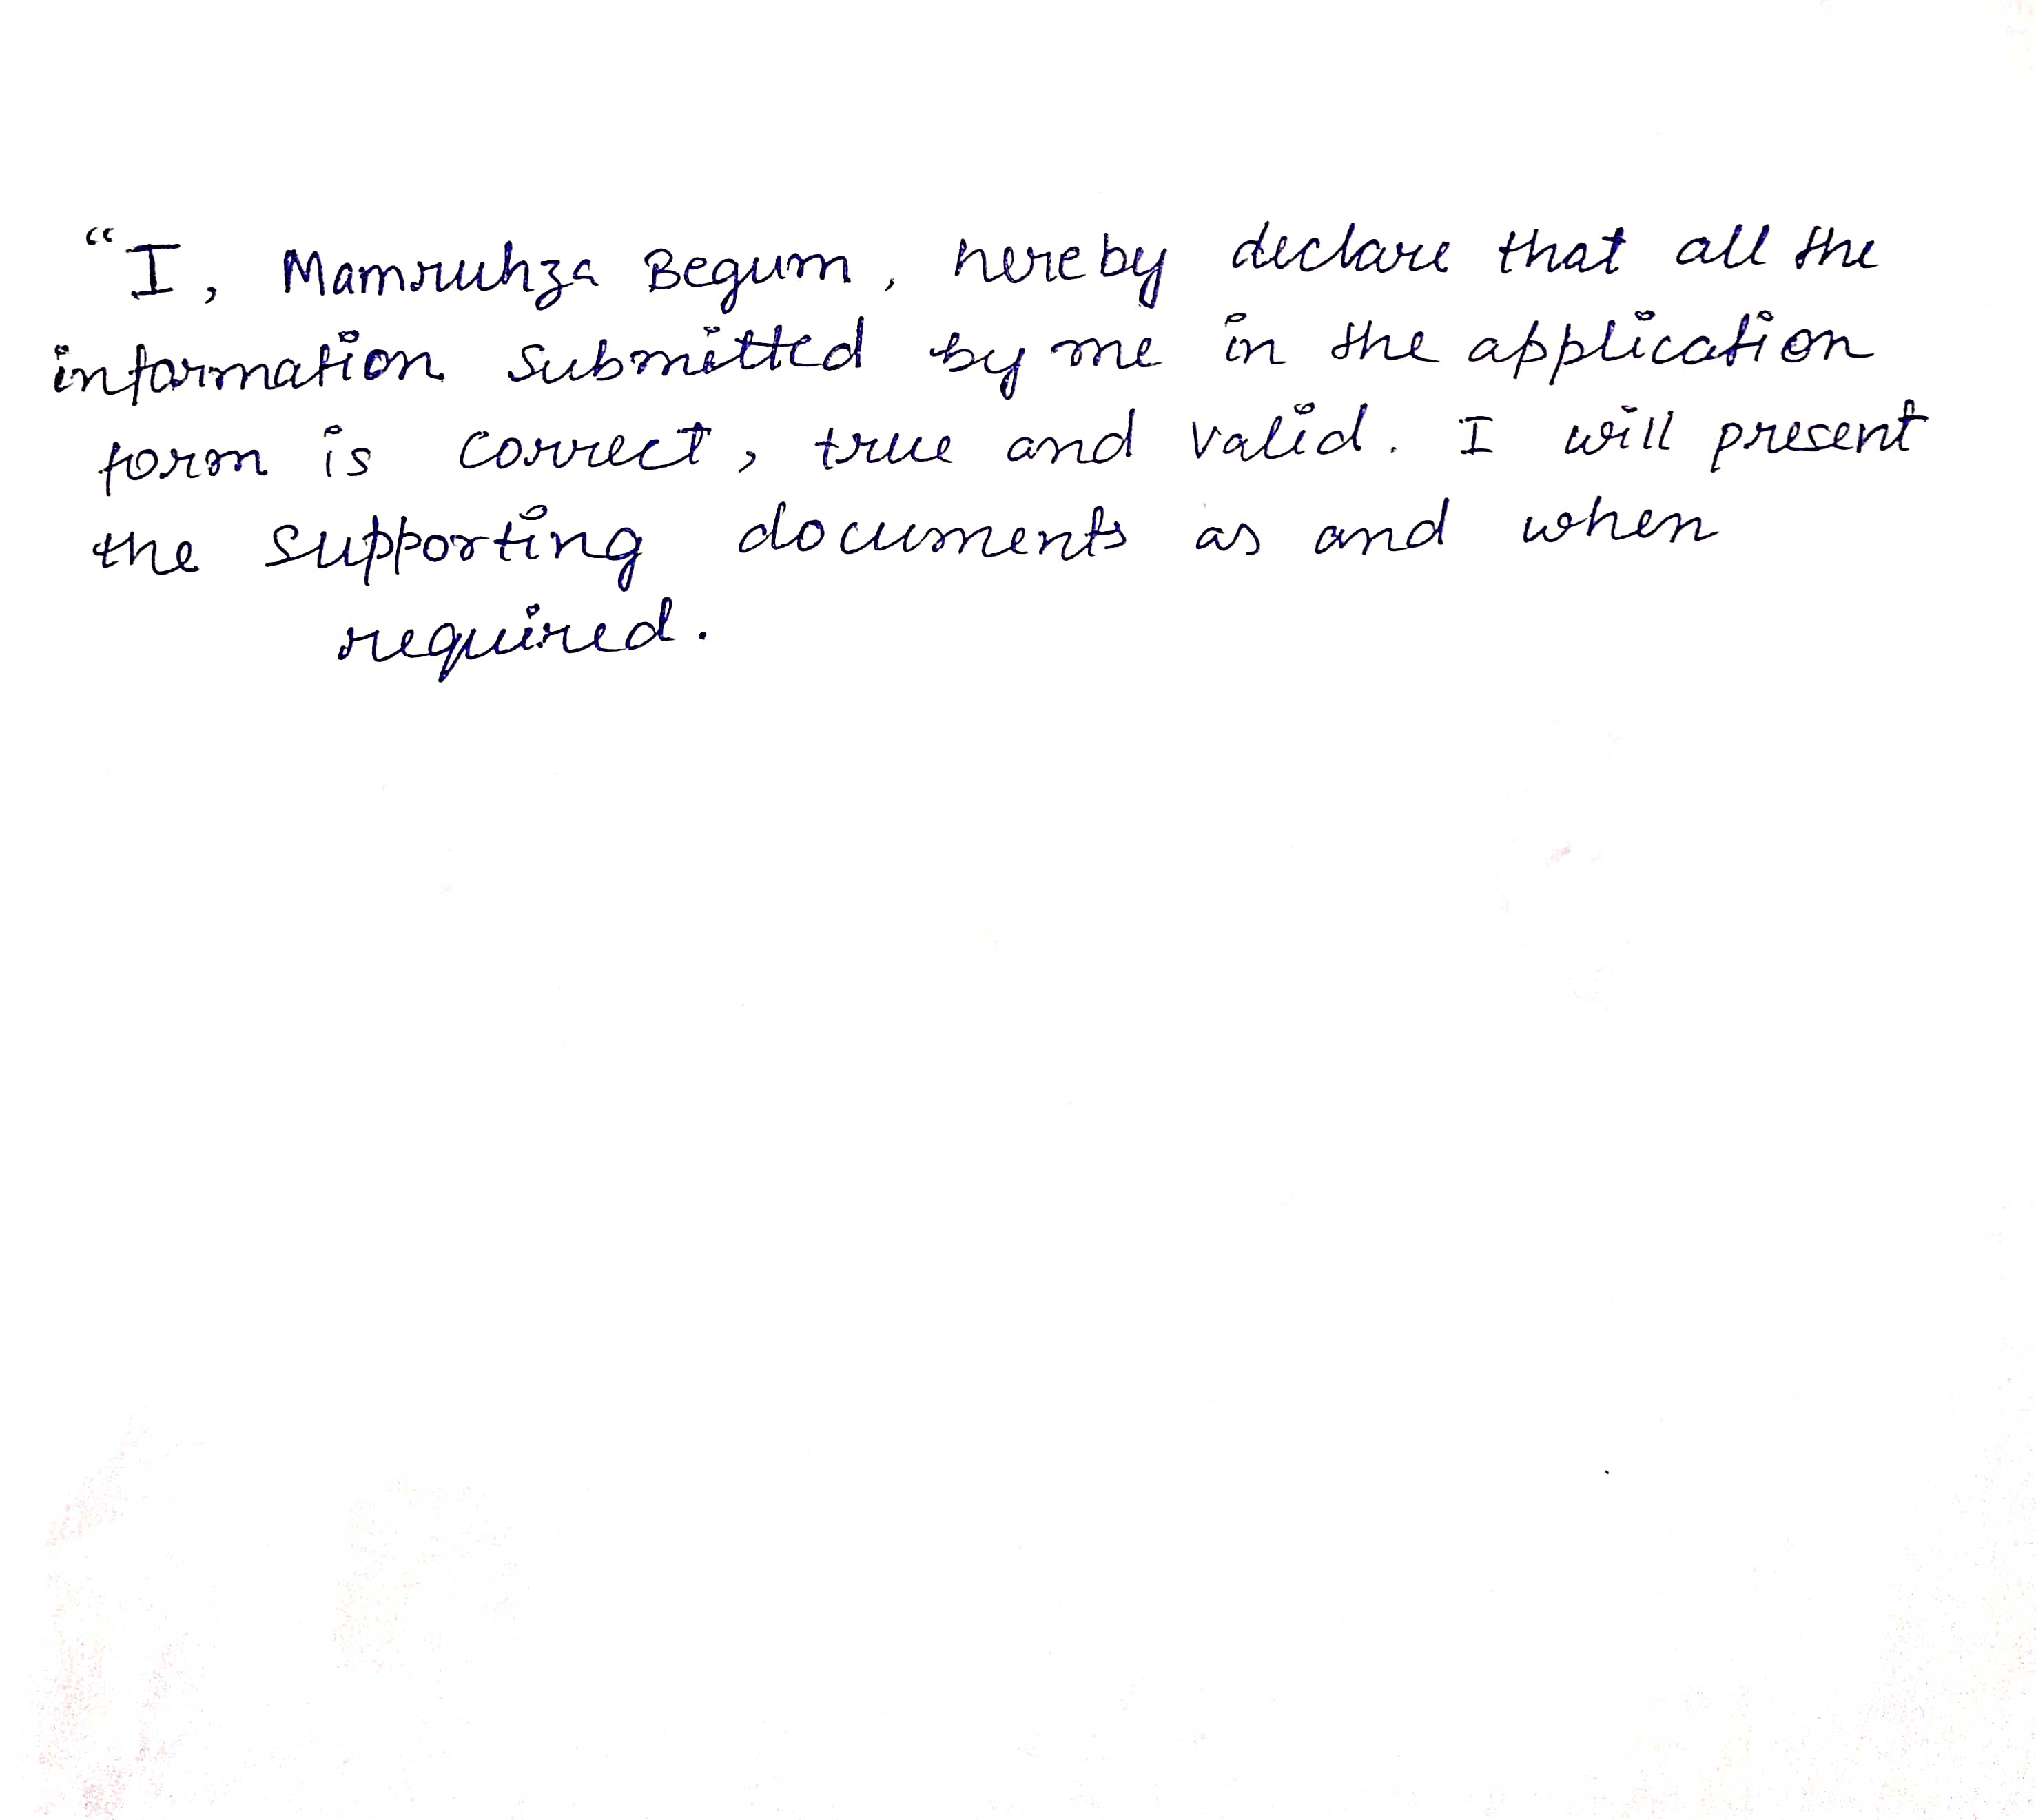 “I, Mamruhza Begum, hereby declare that all the
information submitted by me in the application
form is correct, true and valid. I will present
the supporting documents as and when
required.